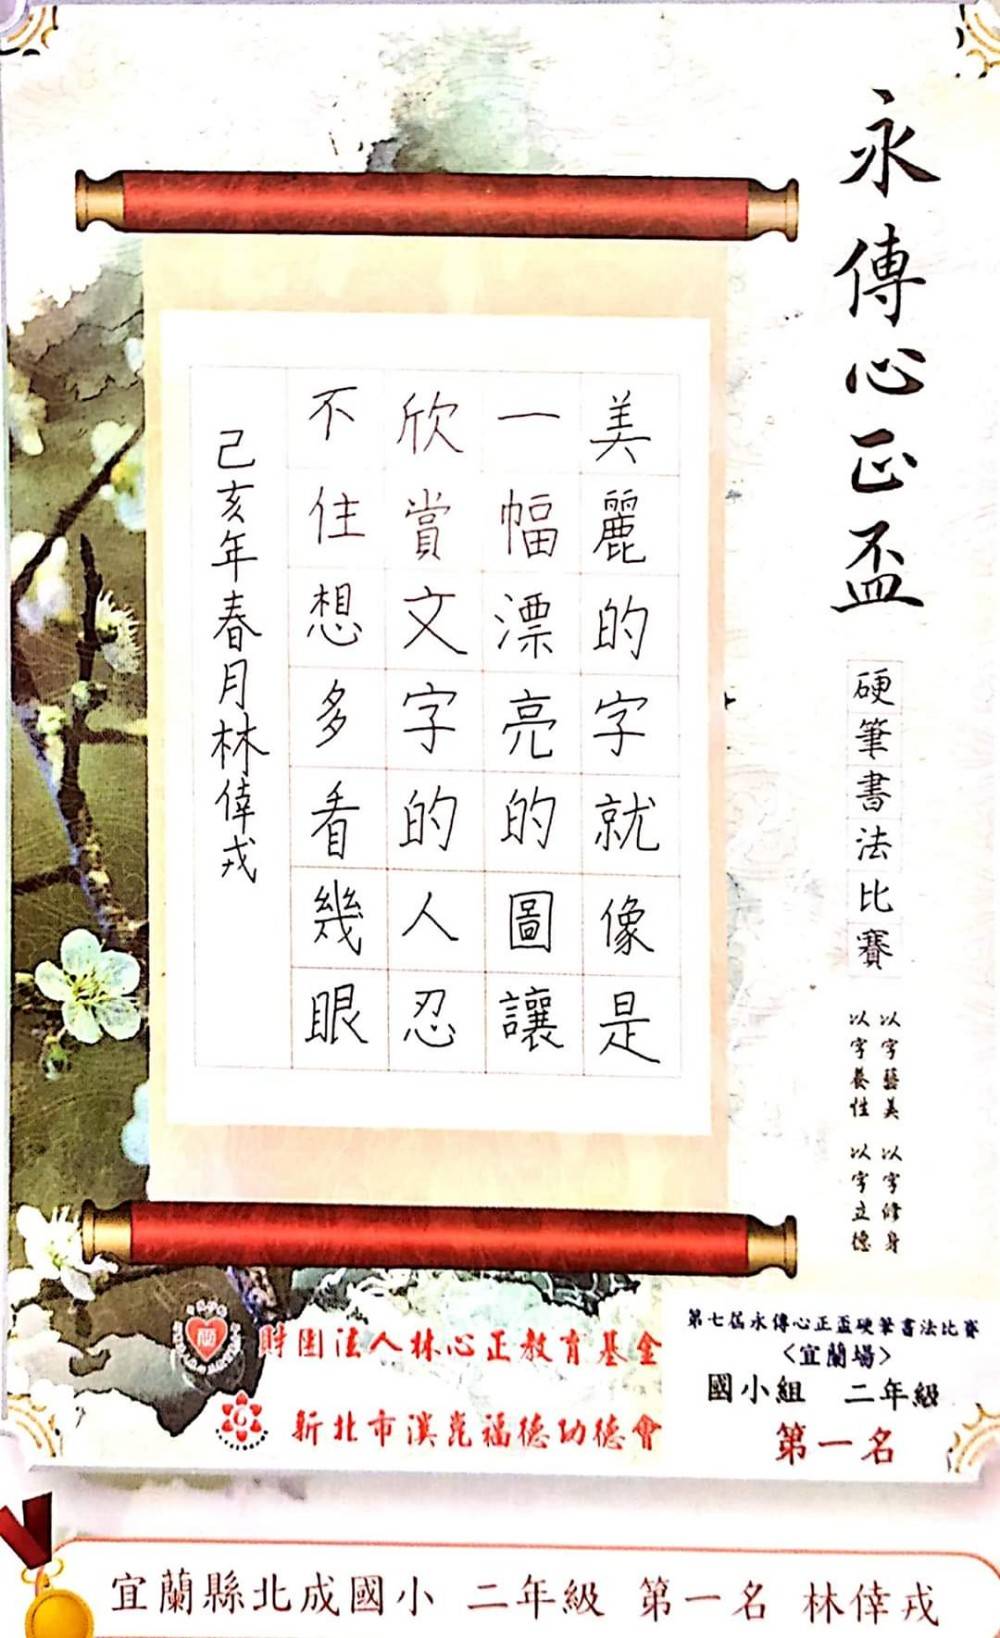 永傳心正盃
硬筆書法比賽
以字藝美 以字修身
以字養性 以字立德
美麗的字就像是
一幅漂亮的圖讓
欣賞文字的人忍
不住想多看幾眼
己亥年春月林倖戎
財團法人林心正教育基金
新北市漢崑福德功德會
第七屆永傳心正盃硬筆書法比賽
<宜蘭場>
國小組 二年級
第一名
宜蘭縣北成國小 二年級 第一名 林倖戎